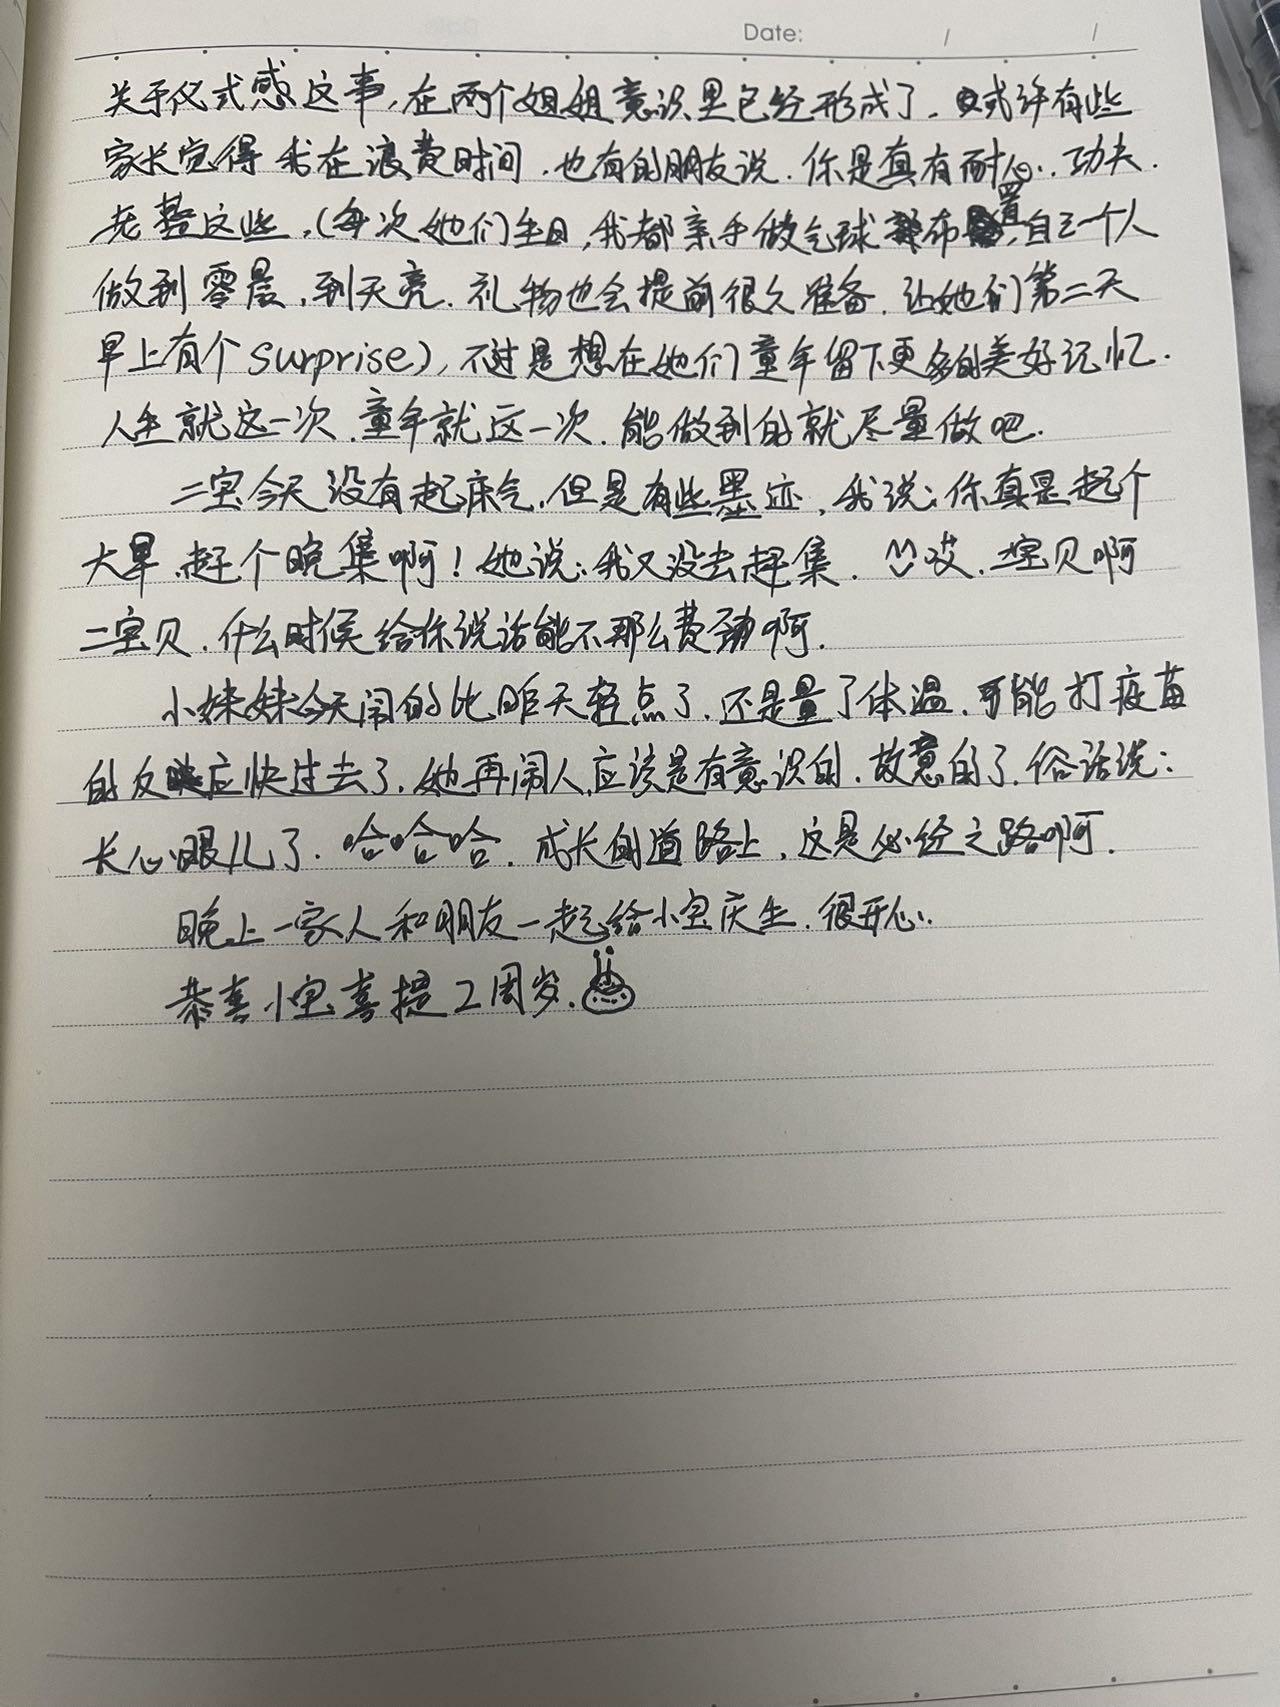 Date: / /
关于仪式感这事,在两个姐姐意识里已经形成了.或许有些
家长觉得我在浪费时间.也有的朋友说.你是真有耐心.功夫.
老整这些.(每次她们生日,我都亲手做气球布置,自己一个人
做到零晨,到天亮.礼物也会提前很久准备.让她们第二天
早上有个surprise),不过是想在她们童年留下更多的美好记忆.
人生就这一次.童年就这一次.能做到的就尽量做吧.
二宝今天没有起床气.但是有些墨迹,我说:你真是起个
大早.赶个晚集啊!她说:我又没去赶集.哎.宝贝啊
二宝贝.什么时候给你说话能不那么费劲啊.
小妹妹今天闹的比昨天轻点了.还是量了体温.可能打疫苗
的反应快过去了.她再闹人应该是有意识的.故意的了.俗话说:
长心眼儿了.哈哈哈.成长的道路上.这是必经之路啊.
晚上一家人和朋友一起给小宝庆生.很开心.
恭喜小宝喜提2周岁.